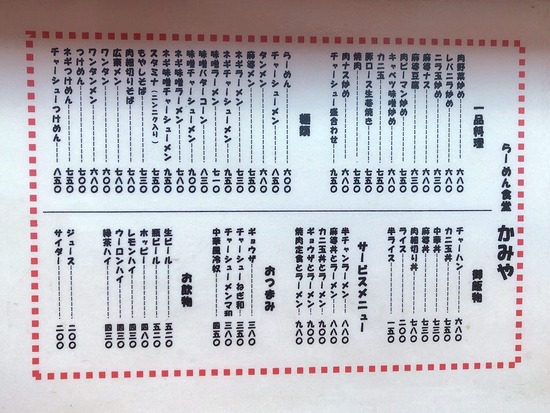 らーめん食堂 かみや
一品料理
肉野菜炒め 六八〇
レバニラ炒め 六八〇
ニラ玉炒め 六三〇
麻婆ナス 六三〇
麻婆豆腐 六三〇
肉ピーマン炒め
キャベツ辛味炒め
カニ玉
豚ロース生姜焼き
焼肉
肉ナス炒め 七五〇
チャーシュー盛合わせ 九五〇
麺類
らーめん 六〇〇
チャーシューメン 八五〇
タンメン
麻婆メン
ネギチャーシューメン
ネギラーメン
味噌ラーメン 七一〇
味噌バターコーン 八三〇
味噌チャーシューメン
ネギ味噌ラーメン
ネギ味噌チャーシューメン
スタミナ(ニンニク入り)
もやしそば
肉細切りそば
広東メン
ワンタン
ワンタンメン
つけめん
ネギつけめん 七五〇
チャーシューつけめん 八五〇
御飯物
チャーハン 六八〇
カニ玉丼 七八〇
中華丼 七三〇
麻婆丼 七三〇
肉細切り丼 七八〇
ライス 二〇〇
半ライス 一五〇
サービスメニュー
半チャンラーメン 八八〇
麻婆丼とラーメン 八八〇
カニ玉丼とラーメン 八八〇
ギョウザとラーメン 九八〇
焼肉定食とラーメン 九八〇
おつまみ
ギョウザ 三八〇
チャーシューねぎ和
チャーシューメンマ和 三八〇
中華風冷奴 四五〇
お飲物
生ビール 五二〇
瓶ビール 五二〇
ホッピー 四八〇
レモンハイ 四三〇
ウーロンハイ 四三〇
緑茶ハイ 四三〇
ジュース 二〇〇
サイダー 二〇〇